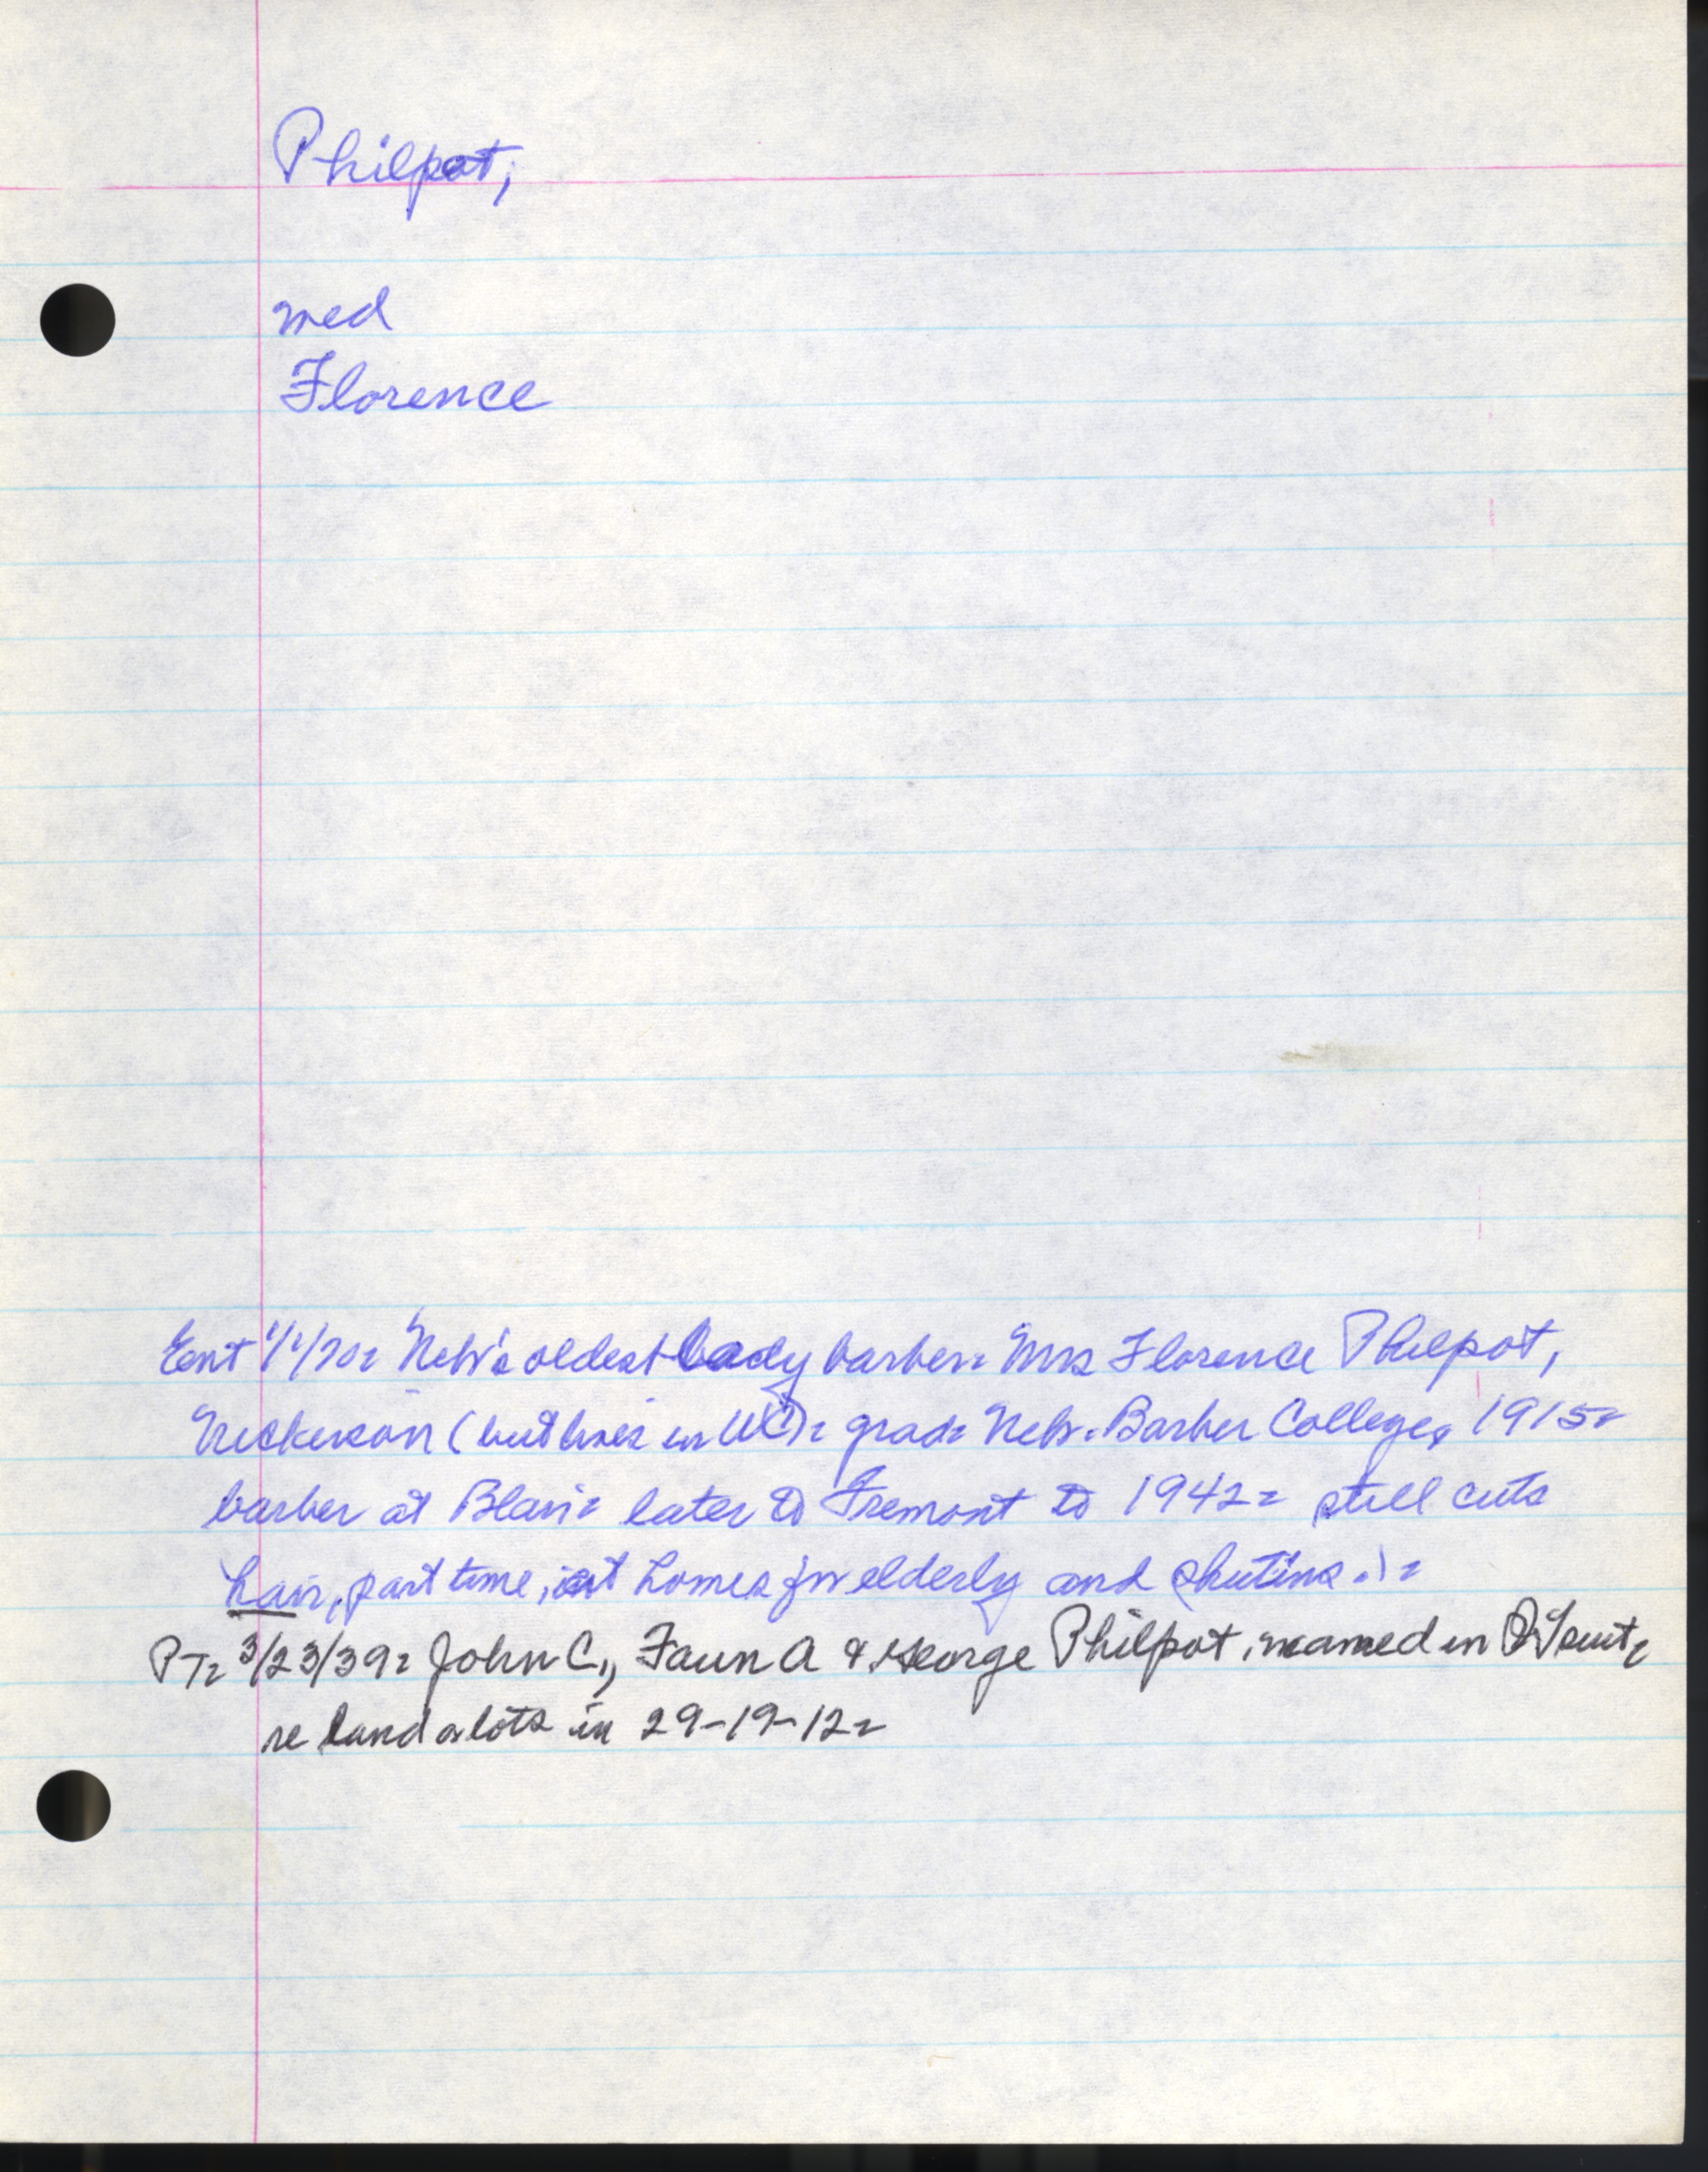 Philpot,
med
Florence
Ent 1/1/70= Neb's oldest lady barber= Mrs Florence Philpot,
Nickerson (but lives in WC)= grad= Neb. Barber College, 1915=
barber at Blair= later to Fremont to 1942= still cuts
hair, part time, at homes for elderly and shutins.)=
PT= 3/23/39= John C., Faun A & George Philpot, named in QT suit,
re land or lots in 29-19-12=